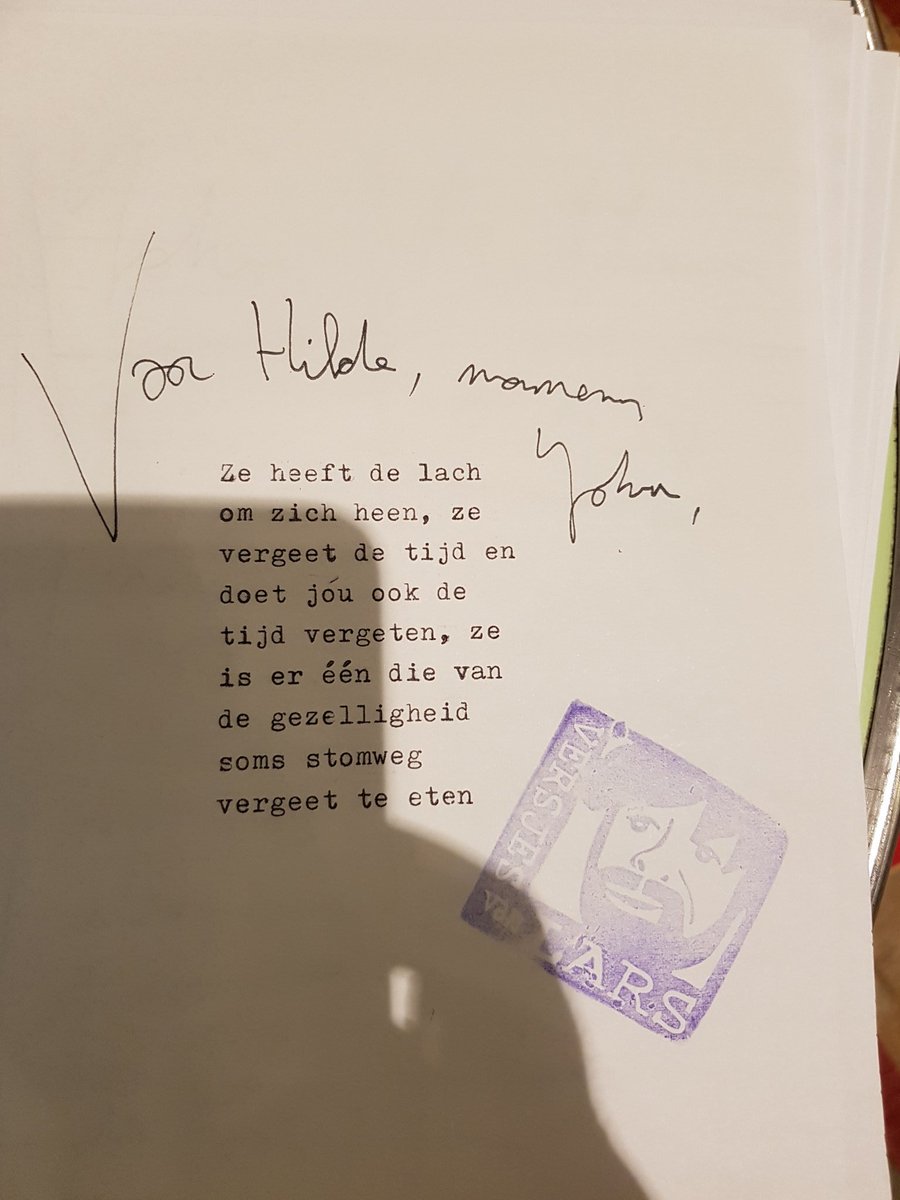 Voor Hilde, namens
John,
Ze heeft de lach
om zich heen, ze
vergeet de tijd en
doet jóu ook de
tijd vergeten, ze
is er één die van
de gezelligheid
soms stomweg
vergeet te eten
VERSJES
van
LARS